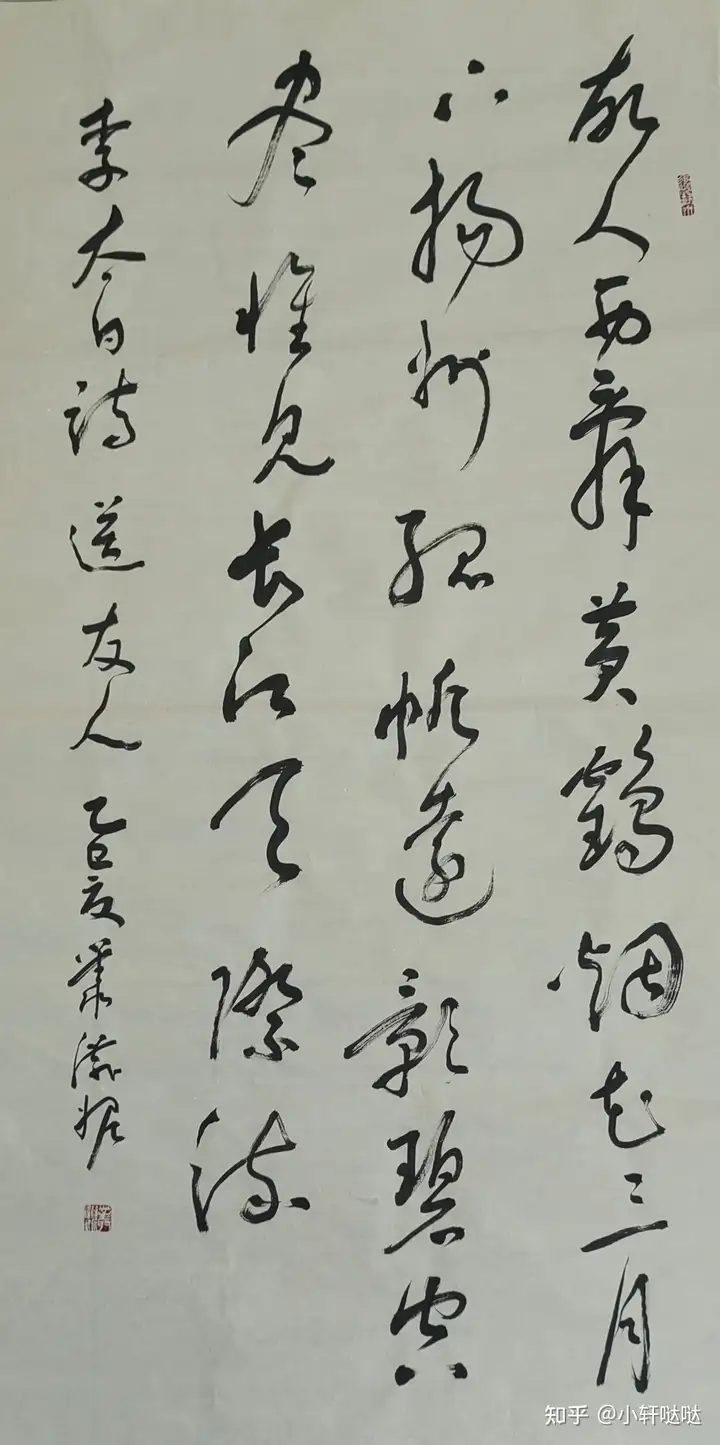 故人西辞黄鹤烟花三月
下扬州孤帆远影碧空
尽惟见长江天际流
李太白诗送友人 乙巳夏
知乎 @小轩哒哒